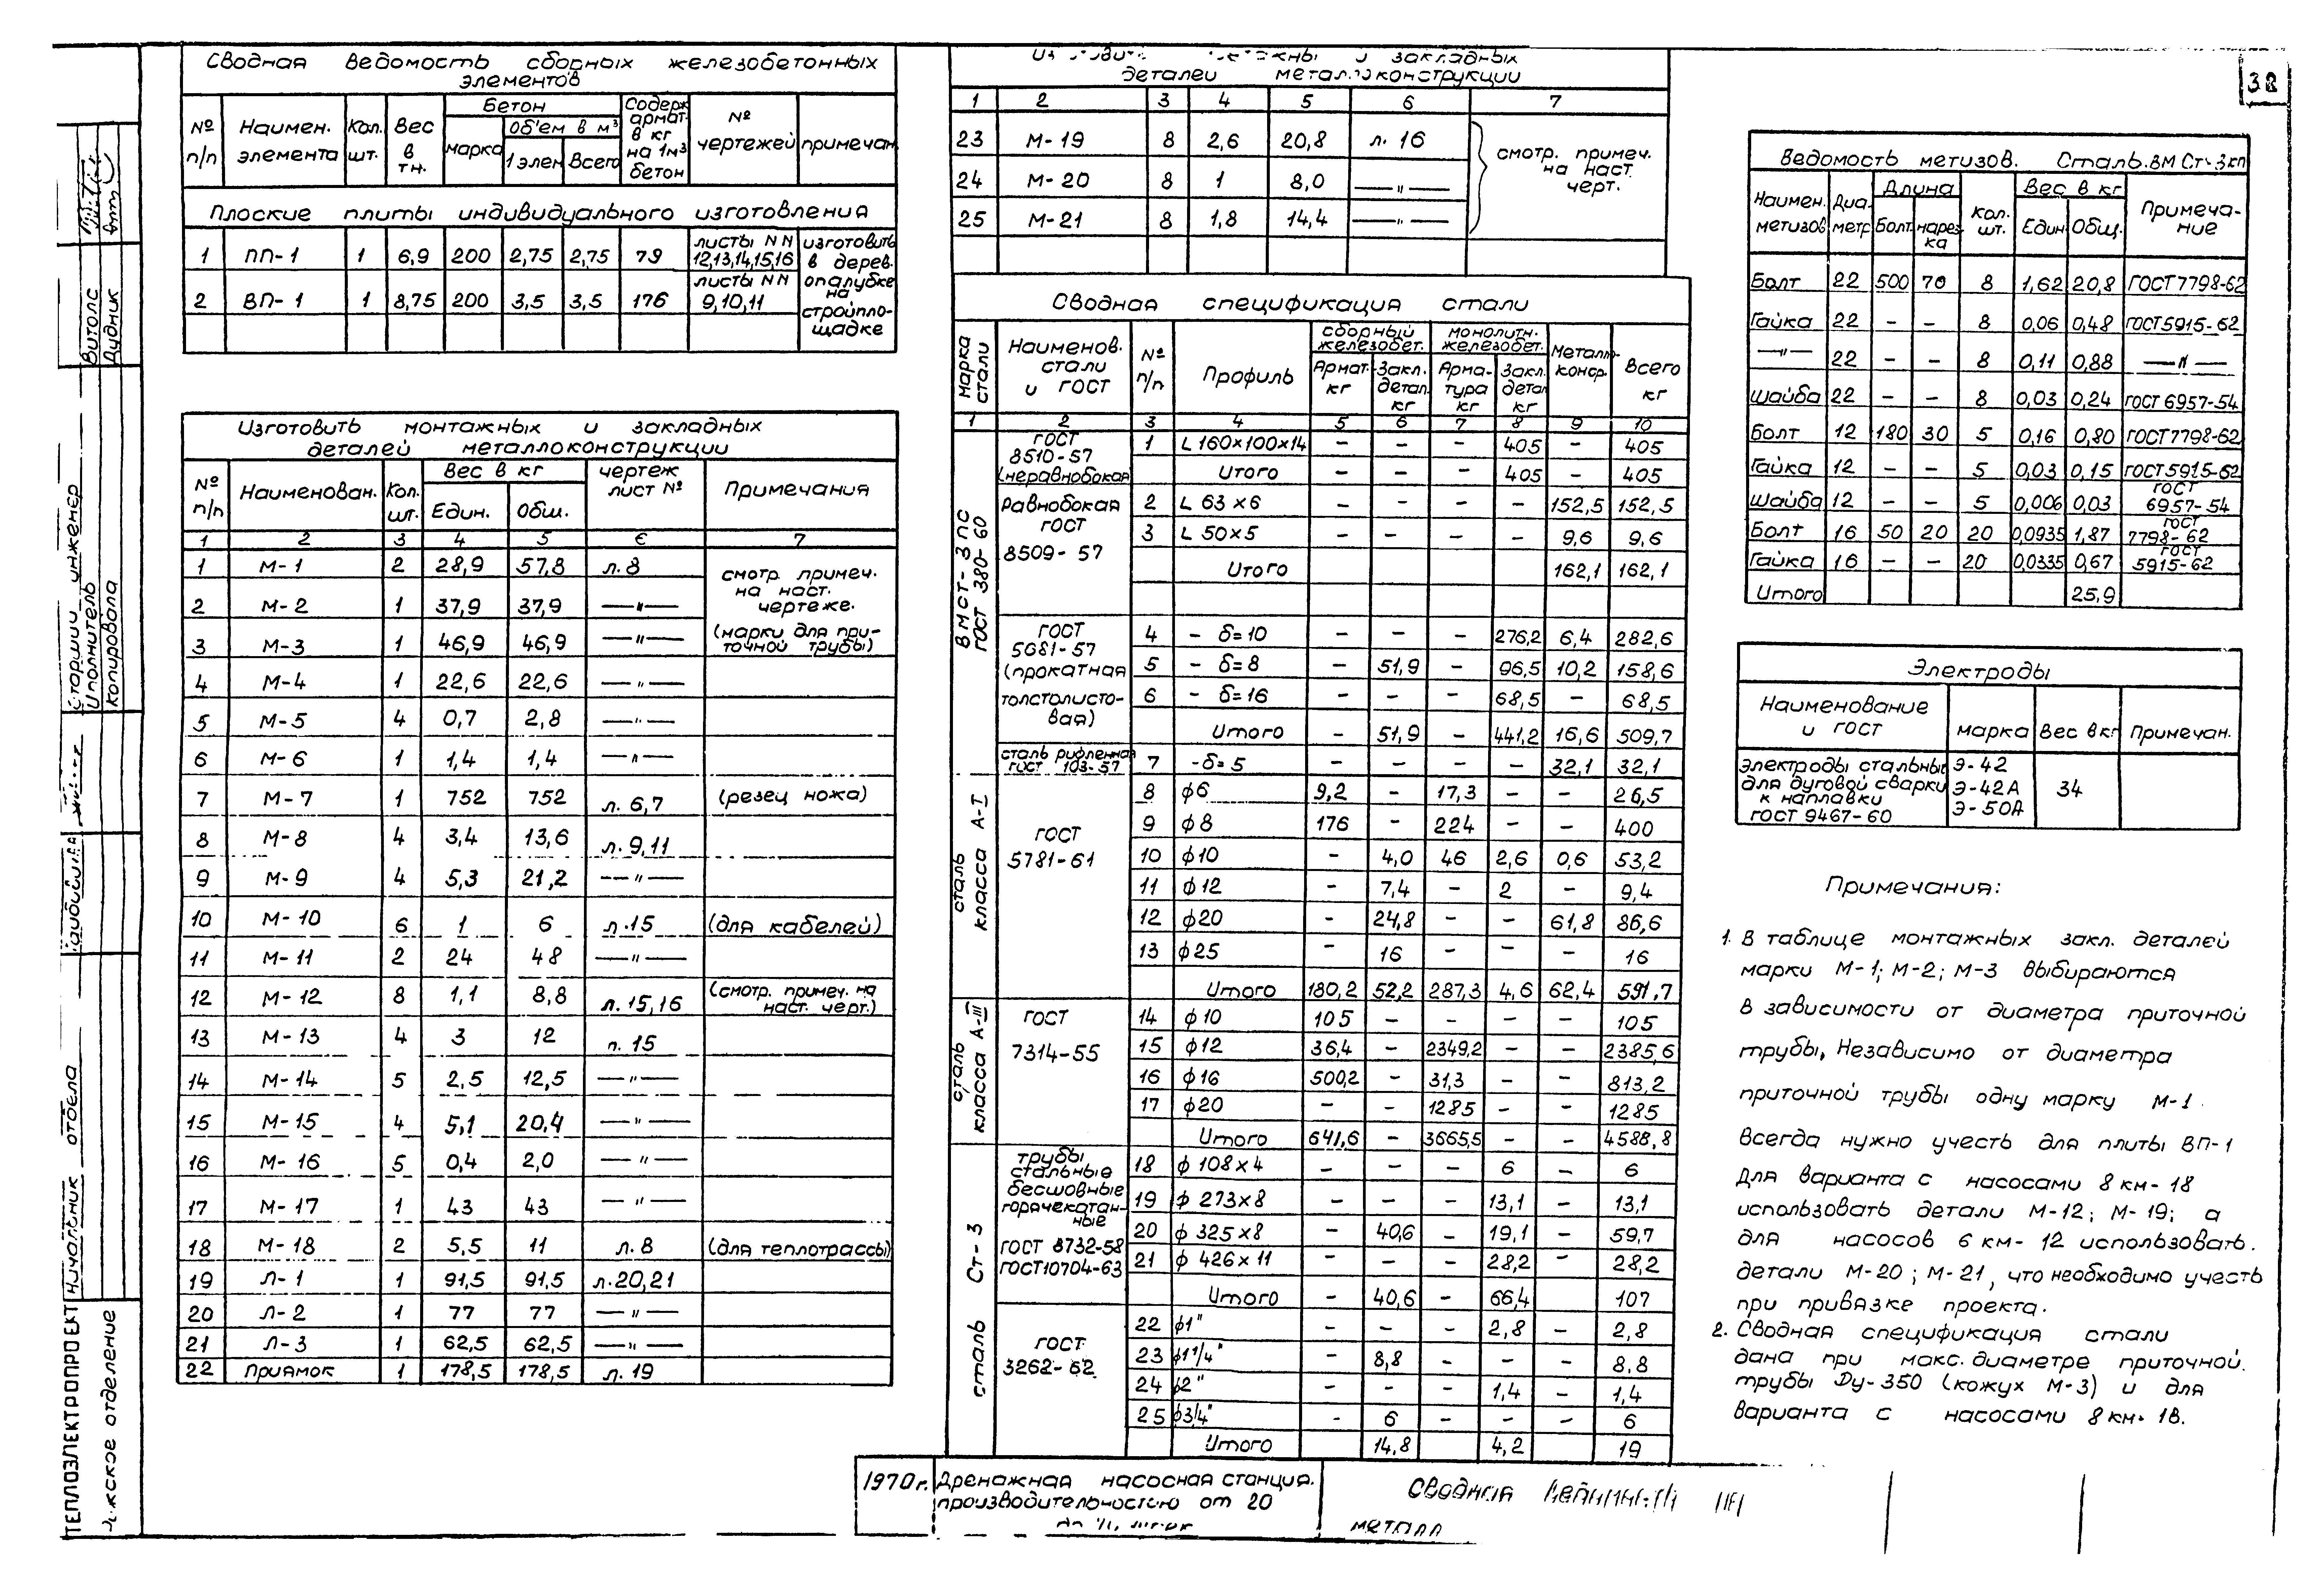 38
Сводная ведомость сборных железобетонных
элементов
№ п/п | Наимен. элемента | Кол. шт. | Вес в тн. | Бетон | Содерж. армат. в кг на 1м³ бетон | № чертежей | примечан.
марка | Об'ем в м³
1 элен | Всего
Плоские плиты индивидуального изготовления
1 | ПП-1 | 1 | 6,9 | 200 | 2,75 | 2,75 | 79 | листы NN 12,13,14,15,16 | изготовить в дерев. опалубке на стройпло-щадке
2 | ВП-1 | 1 | 8,75 | 200 | 3,5 | 3,5 | 176 | листы NN 9,10,11
Изготовить монтажных и закладных
деталей металлоконструкции
№ п/п | Наименован. | Кол. шт. | Вес в кг | чертеж лист № | Примечания
Един. | Общ.
1 | 2 | 3 | 4 | 5 | 6 | 7
1 | М-1 | 2 | 28,9 | 57,8 | л. 8 | смотр. примеч. на наст. чертеже.
2 | М-2 | 1 | 37,9 | 37,9 | —"—
3 | М-3 | 1 | 46,9 | 46,9 | —"— | (марки для при-точной трубы)
4 | М-4 | 1 | 22,6 | 22,6 | —"—
5 | М-5 | 4 | 0,7 | 2,8 | —"—
6 | М-6 | 1 | 1,4 | 1,4 | —"—
7 | М-7 | 1 | 752 | 752 | л. 6,7 | (резец ножа)
8 | М-8 | 4 | 3,4 | 13,6 | л. 9,11
9 | М-9 | 4 | 5,3 | 21,2 | —"—
10 | М-10 | 6 | 1 | 6 | л.15 | (для кабелей)
11 | М-11 | 2 | 24 | 48 | —"—
12 | М-12 | 8 | 1,1 | 8,8 | л. 15,16 | (смотр. примеч. на наст. черт.)
13 | М-13 | 4 | 3 | 12 | л. 15
14 | М-14 | 5 | 2,5 | 12,5 | —"—
15 | М-15 | 4 | 5,1 | 20,4 | —"—
16 | М-16 | 5 | 0,4 | 2,0 | —"—
17 | М-17 | 1 | 43 | 43 | —"—
18 | М-18 | 2 | 5,5 | 11 | л. 8 | (для теплотрассы)
19 | Л-1 | 1 | 91,5 | 91,5 | л.20,21
20 | Л-2 | 1 | 77 | 77 | —"—
21 | Л-3 | 1 | 62,5 | 62,5 | —"—
22 | Приямок | 1 | 178,5 | 178,5 | л. 19
и закладных
деталей металлоконструкции
1 | 2 | 3 | 4 | 5 | 6 | 7
23 | М-19 | 8 | 2,6 | 20,8 | л. 16 | смотр. примеч. на наст. черт.
24 | М-20 | 8 | 1 | 8,0 | —"—
25 | М-21 | 8 | 1,8 | 14,4 | —"—
Сводная спецификация стали
марка стали | Наименов. стали и ГОСТ | № п/п | Профиль | сборный железобет. | монолитн. железобет. | Металло-констр. | Всего кг
Армат. кг | Закл. детал. кг | Арма-тура кг | Закл. детал кг
1 | 2 | 3 | 4 | 5 | 6 | 7 | 8 | 9 | 10
ВМСТ-3ПС ГОСТ 380-60
ГОСТ 8510-57 (неравнобокая | 1 | L 160×100×14 | – | – | – | 405 | – | 405
Итого | – | – | – | 405 | – | 405
Равнобокая ГОСТ 8509-57 | 2 | L 63×6 | – | – | – | 152,5 | 152,5
3 | L 50×5 | – | – | – | 9,6 | 9,6
Итого | 162,1 | 162,1
ГОСТ 5681-57 (прокатная толстолисто-вая) | 4 | – δ=10 | – | – | – | 276,2 | 6,4 | 282,6
5 | – δ=8 | – | 51,9 | – | 96,5 | 10,2 | 158,6
6 | – δ=16 | – | – | – | 68,5 | – | 68,5
Итого | – | 51,9 | – | 441,2 | 16,6 | 509,7
сталь рифленная ГОСТ 103-57 | 7 | -δ=5 | – | – | – | – | 32,1 | 32,1
сталь класса А-I
ГОСТ 5781-61 | 8 | ф6 | 9,2 | – | 17,3 | – | – | 26,5
9 | ф8 | 176 | – | 224 | – | – | 400
10 | ф10 | – | 4,0 | 46 | 2,6 | 0,6 | 53,2
11 | ф12 | – | 7,4 | – | 2 | – | 9,4
12 | ф20 | – | 24,8 | – | – | 61,8 | 86,6
13 | ф25 | – | 16 | – | – | – | 16
Итого | 180,2 | 52,2 | 287,3 | 4,6 | 62,4 | 591,7
сталь класса А-III
ГОСТ 7314-55 | 14 | ф10 | 105 | – | – | – | – | 105
15 | ф12 | 36,4 | – | 2349,2 | – | – | 2385,6
16 | ф16 | 500,2 | – | 31,3 | – | – | 813,2
17 | ф20 | – | – | 1285 | – | – | 1285
Итого | 641,6 | – | 3665,5 | – | – | 4588,8
сталь Ст-3
трубы стальные бесшовные горячекатан-ные ГОСТ 8732-58 ГОСТ10704-63 | 18 | ф 108×4 | – | – | – | 6 | – | 6
19 | ф 273×8 | – | – | – | 13,1 | – | 13,1
20 | ф 325×8 | – | 40,6 | – | 19,1 | – | 59,7
21 | ф 426×11 | – | – | – | 28,2 | – | 28,2
Итого | – | 40,6 | – | 66,4 | 107
ГОСТ 3262-62 | 22 | ф1" | – | – | – | 2,8 | – | 2,8
23 | ф1¼" | – | 8,8 | – | – | – | 8.8
24 | ф2" | – | – | – | 1,4 | – | 1,4
25 | ф3/4" | – | 6 | – | – | – | 6
Итого | 14,8 | 4,2 | 19
Ведомость метизов. Сталь.ВМ Ст-3кп
Наимен. метизов | Диа-метр | Длина | Кол. шт. | Вес в кг | Примеча-ние
Болт. | нарез-ка | Един | Общ.
Болт | 22 | 500 | 70 | 8 | 1,62 | 20,8 | ГОСТ7798-62
Гайка | 22 | – | – | 8 | 0,06 | 0,48 | ГОСТ5915-62
—"— | 22 | – | – | 8 | 0,11 | 0,88 | —"—
Шайба | 22 | – | – | 8 | 0,03 | 0,24 | ГОСТ 6957-54
Болт | 12 | 180 | 30 | 5 | 0,16 | 0,80 | ГОСТ7798-62
Гайка | 12 | – | – | 5 | 0,03 | 0,15 | ГОСТ5915-62
Шайба | 12 | – | – | 5 | 0,006 | 0,03 | ГОСТ 6957-54
Болт | 16 | 50 | 20 | 20 | 0,0935 | 1,87 | ГОСТ 7798-62
Гайка | 16 | – | – | 20 | 0,0335 | 0,67 | ГОСТ 5915-62
Итого | 25,9
Электроды
Наименование и ГОСТ | марка | Вес в кг | Примечан.
Электроды стальные для дуговой сварки к наплавки ГОСТ 9467-60 | Э-42 Э-42А Э-50А | 34
Примечания:
1. В таблице монтажных закл. деталей
марки М-1; М-2; М-3 выбираются
в зависимости от диаметра приточной
трубы, Независимо от диаметра
приточной трубы одну марку М-1
всегда нужно учесть для плиты ВП-1
Для варианта с насосами 8 км-18
использовать детали М-12; М-19; а
для насосов 6 км-12 использовать.
детали М-20; М-21, что необходимо учесть
при привязке проекта.
2. Сводная спецификация стали
дана при макс. диаметре приточной.
трубы Ду-350 (кожух М-3) и для
варианта с насосами 8 км-18.
1970г. | Дренажная насосная станция.
производительностью от 20
Сводная
металл
ТЕПЛОЭЛЕКТРОПРОЕКТ
отделение
Начальник отдела
Старший инженер
Исполнитель
Копировала
Витолс
Дудник